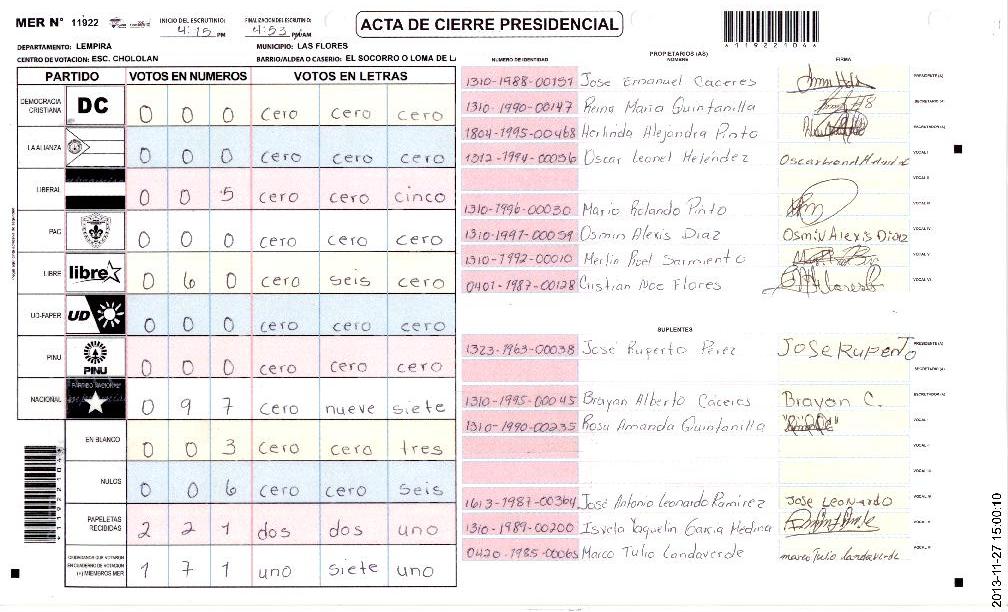 MER N° 11922
INICIO DEL ESCRUTINIO: 4:15 PM
FINALIZACION DEL ESCRUTINIO: 4:53 PM/AM
ACTA DE CIERRE PRESIDENCIAL
1192210
DEPARTAMENTO: LEMPIRA
MUNICIPIO: LAS FLORES
CENTRO DE VOTACION: ESC. CHOLOLAN
BARRIO/ALDEA O CASERIO: EL SOCORRO O LOMA DE LA
PARTIDO VOTOS EN NUMEROS VOTOS EN LETRAS
DEMOCRACIA CRISTIANA DC 0 0 0 cero cero cero
LA ALIANZA 0 0 0 cero cero cero
LIBERAL 0 0 5 cero cero cinco
PAC 0 0 0 cero cero cero
LIBRE libre 0 6 0 cero seis cero
UD-FAPER UD 0 0 0 cero cero cero
PINU PINU 0 0 0 cero cero cero
NACIONAL PARTIDO NACIONAL 0 9 7 cero nueve siete
EN BLANCO 0 0 3 cero cero tres
NULOS 0 0 6 cero cero seis
PAPELETAS RECIBIDAS 2 2 1 dos dos uno
CIUDADANOS QUE VOTARON EN CUADERNO DE VOTACION (+) MIEMBROS MER 1 7 1 uno siete uno
PROPIETARIOS (AS)
NUMERO DE IDENTIDAD NOMBRE FIRMA
1310-1988-00157 Jose Emanuel Caceres PRESIDENTE (A)
1310-1990-00147 Reina Maria Quintanilla SECRETARIO (A)
1804-1995-00468 Herlinda Alejandra Pinto ESCRUTADOR (A)
1312-1994-00056 Oscar Leonel Meléndez VOCAL I
VOCAL II
1310-1996-00030 Mario Rolando Pinto VOCAL III
1310-1997-00059 Osmin Alexis Diaz Osmin Alexis Diaz VOCAL IV
1310-1992-00010 Merlin Roel Sarmiento VOCAL V
0401-1987-00128 Cristian Noe Flores VOCAL VI
SUPLENTES
1323-1963-00038 José Ruperto Pérez JOSE RUPERTO PRESIDENTE (A)
SECRETARIO (A)
1310-1995-00045 Brayan Alberto Cáceres Brayan C. ESCRUTADOR (A)
1310-1990-00235 Rosa Amanda Quintanilla VOCAL I
VOCAL II
VOCAL III
1613-1987-00364 José Antonio Leonardo Ramírez Jose Leonardo VOCAL IV
1310-1989-00200 Isvela Yaquelin Garcia Medina VOCAL V
0420-1985-00065 Marco Tulio Landaverde marco Tulio landaverde VOCAL VI
2013-11-27 15:00:10